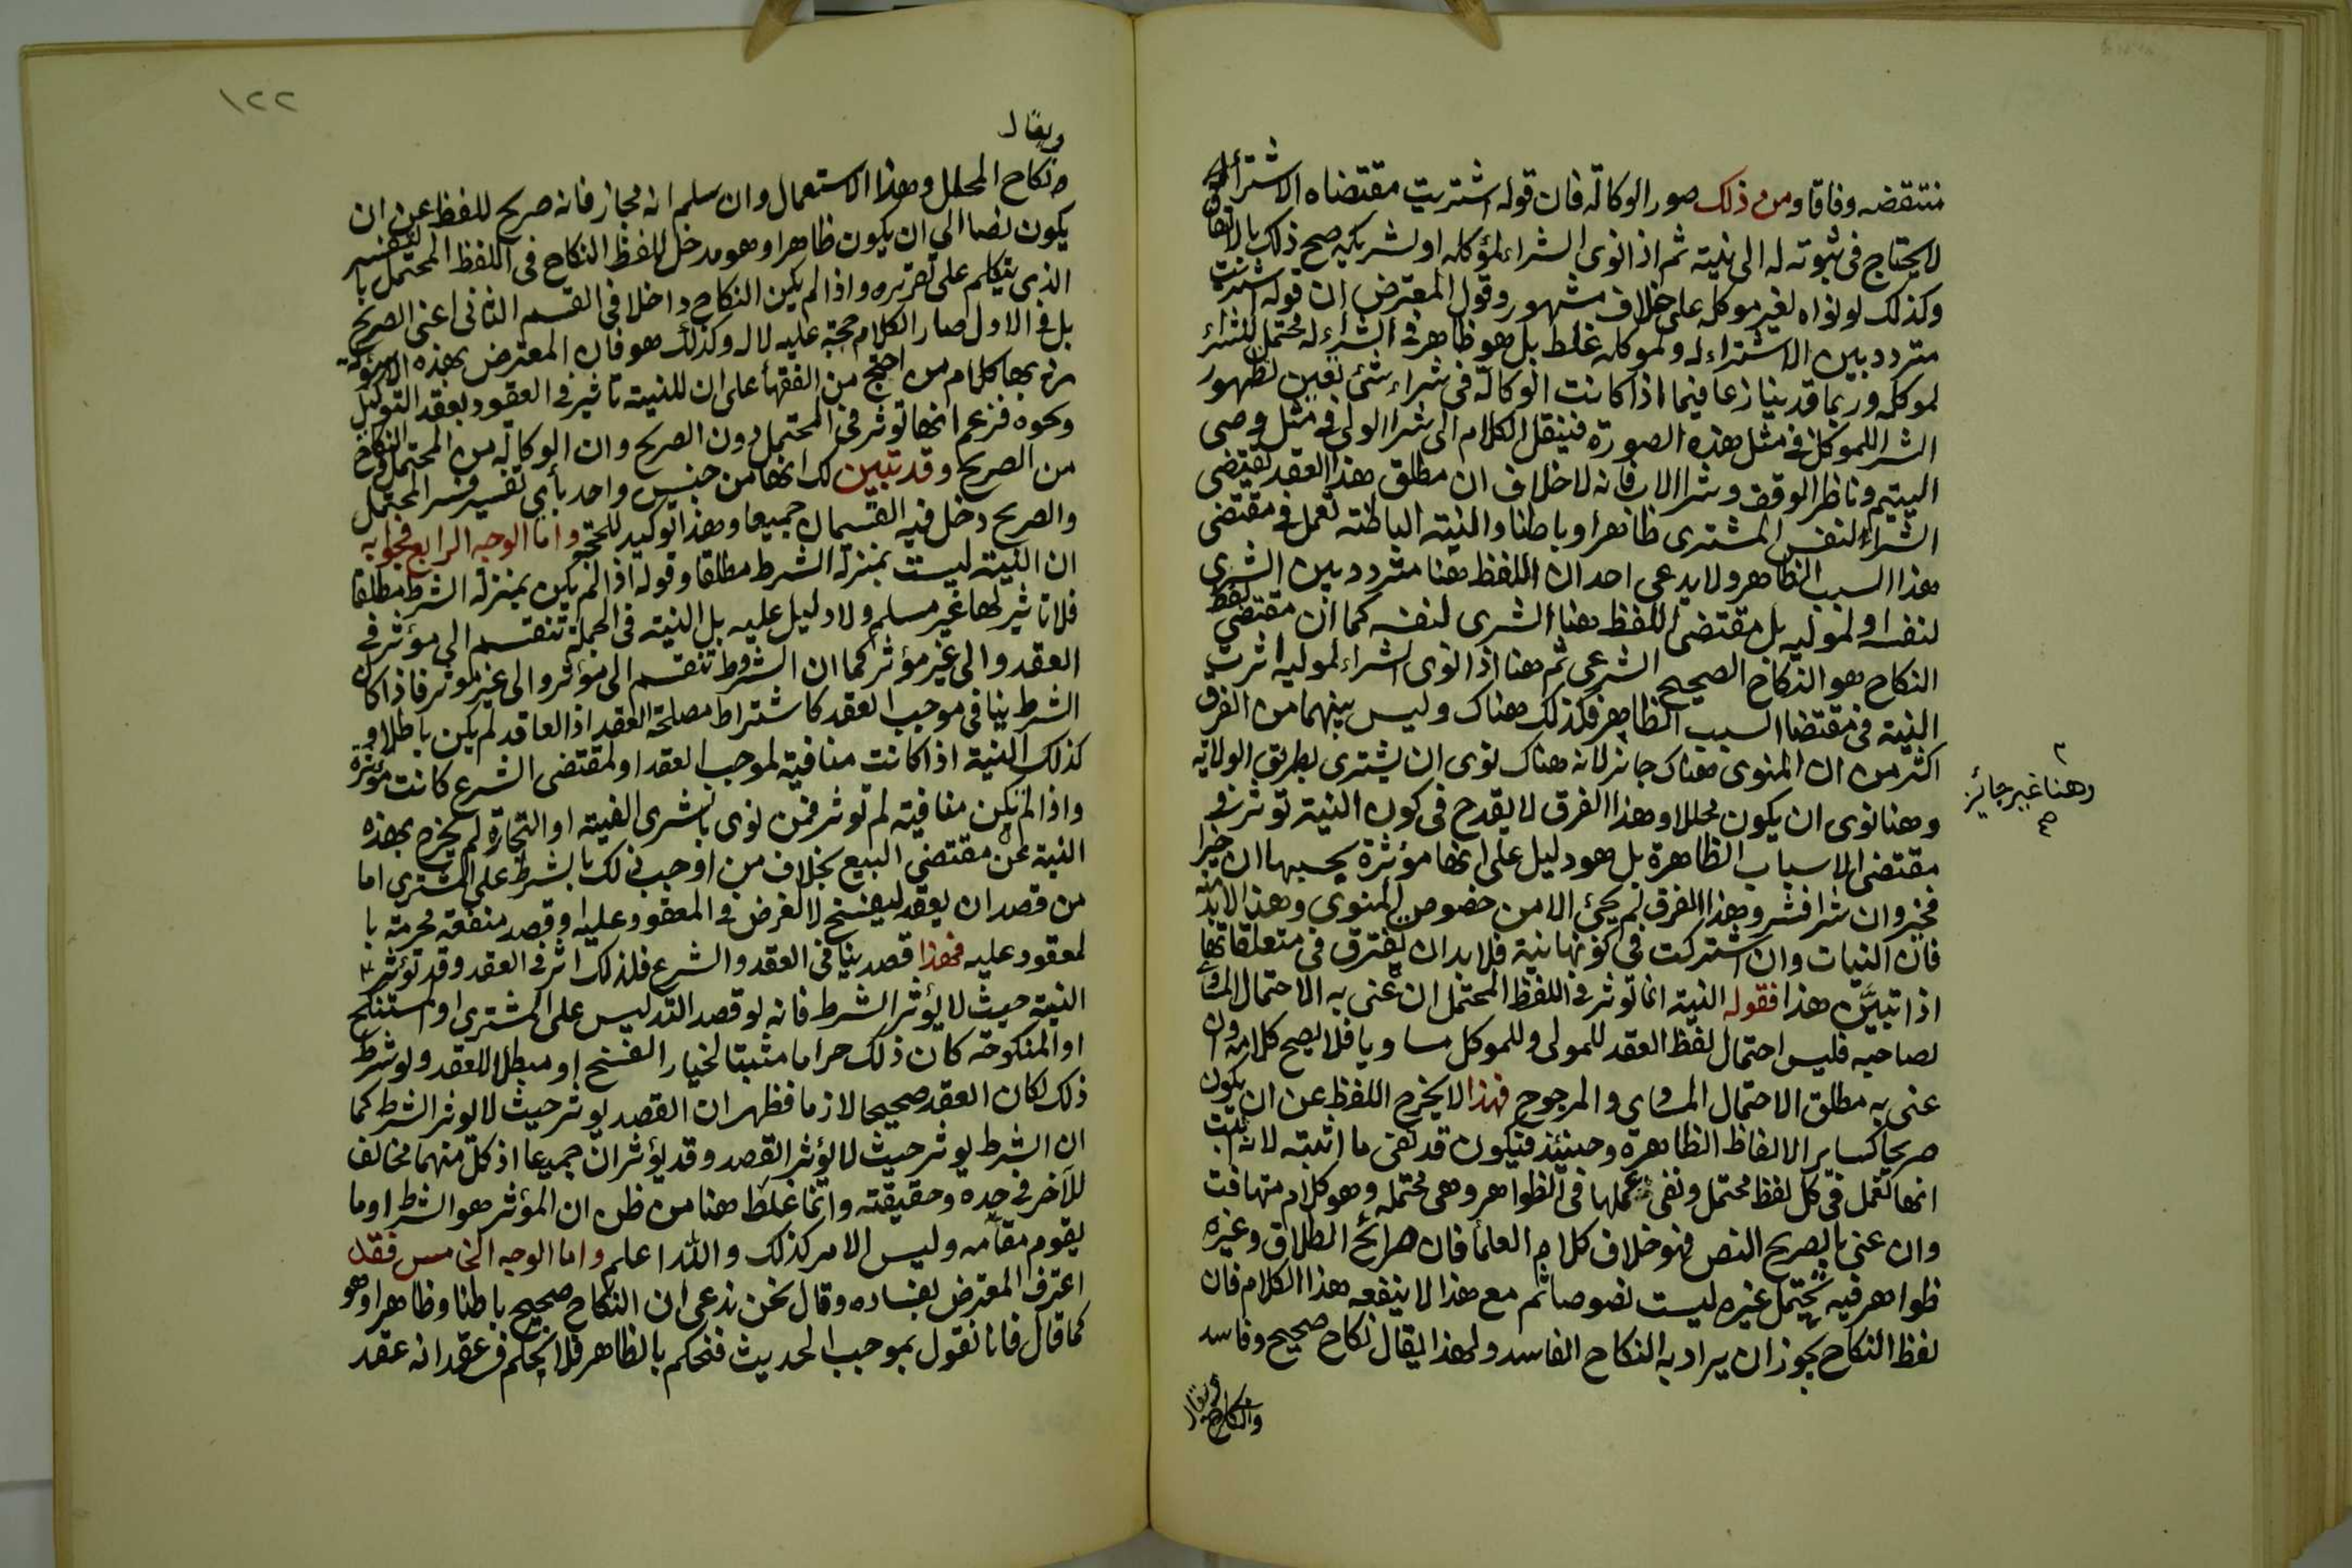 منتقضه وفاقا ومن ذلك صور الوكالة فان قوله اشتريت مقتضاه الاشتراء له
لا يحتاج في ثبوته له الى نية ثم اذا نوى الشراء لموكله او لشريكه صح ذلك بالاتفاق
وكذلك لو نواه لغير موكله على خلاف مشهور وقول المعترض ان قوله اشتريت
متردد بين الاشتراء له ولموكله غلط بل هو ظاهر في الشراء له محتمل للشراء
لموكله وربما قد ينازعا فيما اذا كانت الوكالة في شراء شئ تعين لظهور
الشرا للموكل في مثل هذه الصورة فينقل الكلام الى شرا الولي في مثل وصي
اليتيم وناظر الوقف وشرا الاب فانه لا خلاف ان مطلق هذا العقد يقتضي
الشراء لنفس المشترى ظاهرا وباطنا والنية الباطنة تعمل في مقتضى
هذا السبب الظاهر ولا يدعى احد ان اللفظ هنا متردد بين الشرى
لنفسه او لموليه بل مقتضى اللفظ هنا الشرى لنفسه كما ان مقتضى لفظ
النكاح هو النكاح الصحيح الشرعي ثم هنا اذا نوى الشراء لموليه اثرت
النية في مقتضا السبب الظاهر فكذلك هناك وليس بينهما من الفرق
اكثر من ان المنوى هناك جائز لانه هناك نوى ان يشترى بطريق الولاية
وهنا غير جائز
صح
وهنا نوى ان يكون محللا وهذا الفرق لا يقدح في كون النية توثر في
مقتضى الاسباب الظاهرة بل هو دليل على انها مؤثرة بحسبها ان خيرا
فخير وان شرا فشر وهذا الفرق لم يجئ الا من خصوص المنوى وهذا لا بد منه
فان النيات وان اشتركت في كونها نية فلا بد ان يفترق في متعلقاتها
اذا تبيَّن هذا فقوله النية انما توثر في اللفظ المحتمل ان عنى به الاحتمال المساوي
لصاحبه فليس احتمال لفظ العقد للمولى وللموكل مساويا فلا يصح كلامه وان
عنى به مطلق الاحتمال المساوي والمرجوح فهذا لا يخرج اللفظ عن ان يكون
صريحا كساير الالفاظ الظاهرة وحينئذ فيكون قد نفى ما اثبته لانه ثبت
انها تعمل في كل لفظ محتمل ونفى عملها في الظواهر وهي محتملة وهو كلام متهافت
وان عنى بالصريح النص فهو خلاف كلام العلمأ فان صرائح الطلاق وغيره
ظواهر فيه تحتمل غيره ليست نصوصا ثم مع هذا لا ينفعه هذا الكلام فان
لفظ النكاح يجوز ان يراد به النكاح الفاسد ولهذا يقال نكاح صحيح وفاسد
ويقال
والنكاح
١٢٢
ويقال
ونكاح المحلل وهذا الاستعمال وان سلم انه مجاز فانه صريح للفظ عن ان
يكون نصا الى ان يكون ظاهرا وهو مدخل للفظ النكاح في اللفظ المحتمل بالتفسير
الذى يتكلم على تقريره واذا لم يكن النكاح داخلا في القسم الثاني اعنى الصريح
بل في الاول صار الكلام حجة عليه لا له وكذلك هو فان المعترض بهذه الاسؤلة
بها كلام من احتج من الفقهأ على ان للنية تاثير في العقود بعقد التوكيل
ونحوه فزعم انها توثر في المحتمل دون الصريح وان الوكالة من المحتمل والنكاح
من الصريح وقد تبين لك انهما من جنس واحد بأي تفسير فسر المحتمل
والصريح دخل فيه القسمان جميعا وهذا توكيد للحجة واما الوجه الرابع فجوابه
ان النية ليست بمنزلة الشرط مطلقا وقوله اذا لم يكن بمنزلة الشرط مطلقا
فلا تاثير لها غير مسلم ولا دليل عليه بل النية في الجملة تنقسم الى مؤثر في
العقد والى غير مؤثر كما ان الشروط تنقسم الى مؤثر والى غير مؤثر فاذا كان
الشرط ينافي موجب العقد كاشتراط مصلحة العقد اذ العاقد لم يكن باطلا و
كذلك النية اذا كانت منافية لموجب العقد او لمقتضى الشرع كانت مؤثرة
واذا لم يكن منافية لم توثر فمن نوى بالشرى القنية او التجارة لم يخرج بهذه
النية عن مقتضى البيع بخلاف من اوجب ذلك بالشرط على المشترى اما
من قصد ان يعقد ليفسخ لا لغرض في المعقود عليه او قصد منفعة محرمة با
لمعقود عليه فهذا قصد ينافي العقد والشرع فلذلك اثر في العقد وقد تؤثر
النية حيث لا يؤثر الشرط فانه لو قصد التدليس على المشترى او المستنكح
او المنكوحة كان ذلك حراما مثبتا لخيار الفسخ او مبطلا للعقد ولو شرط
ذلك لكان العقد صحيحا لازما فظهر ان القصد يوثر حيث لا يوثر الشرط كما
ان الشرط يوثر حيث لا يؤثر القصد وقد يؤثران جميعا اذ كل منهما مخالف
للآخر في حده وحقيقته وانما غلط هنا من ظن ان المؤثر هو الشرط او ما
يقوم مقامه وليس الامر كذلك والله اعلم واما الوجه الخامس فقد
اعترف المعترض بفساده وقال نحن ندعى ان النكاح صحيح باطنا وظاهرا وهو
كما قال فانا نقول بموجب الحديث فنحكم بالظاهر فلا نحكم في عقد انه عقد